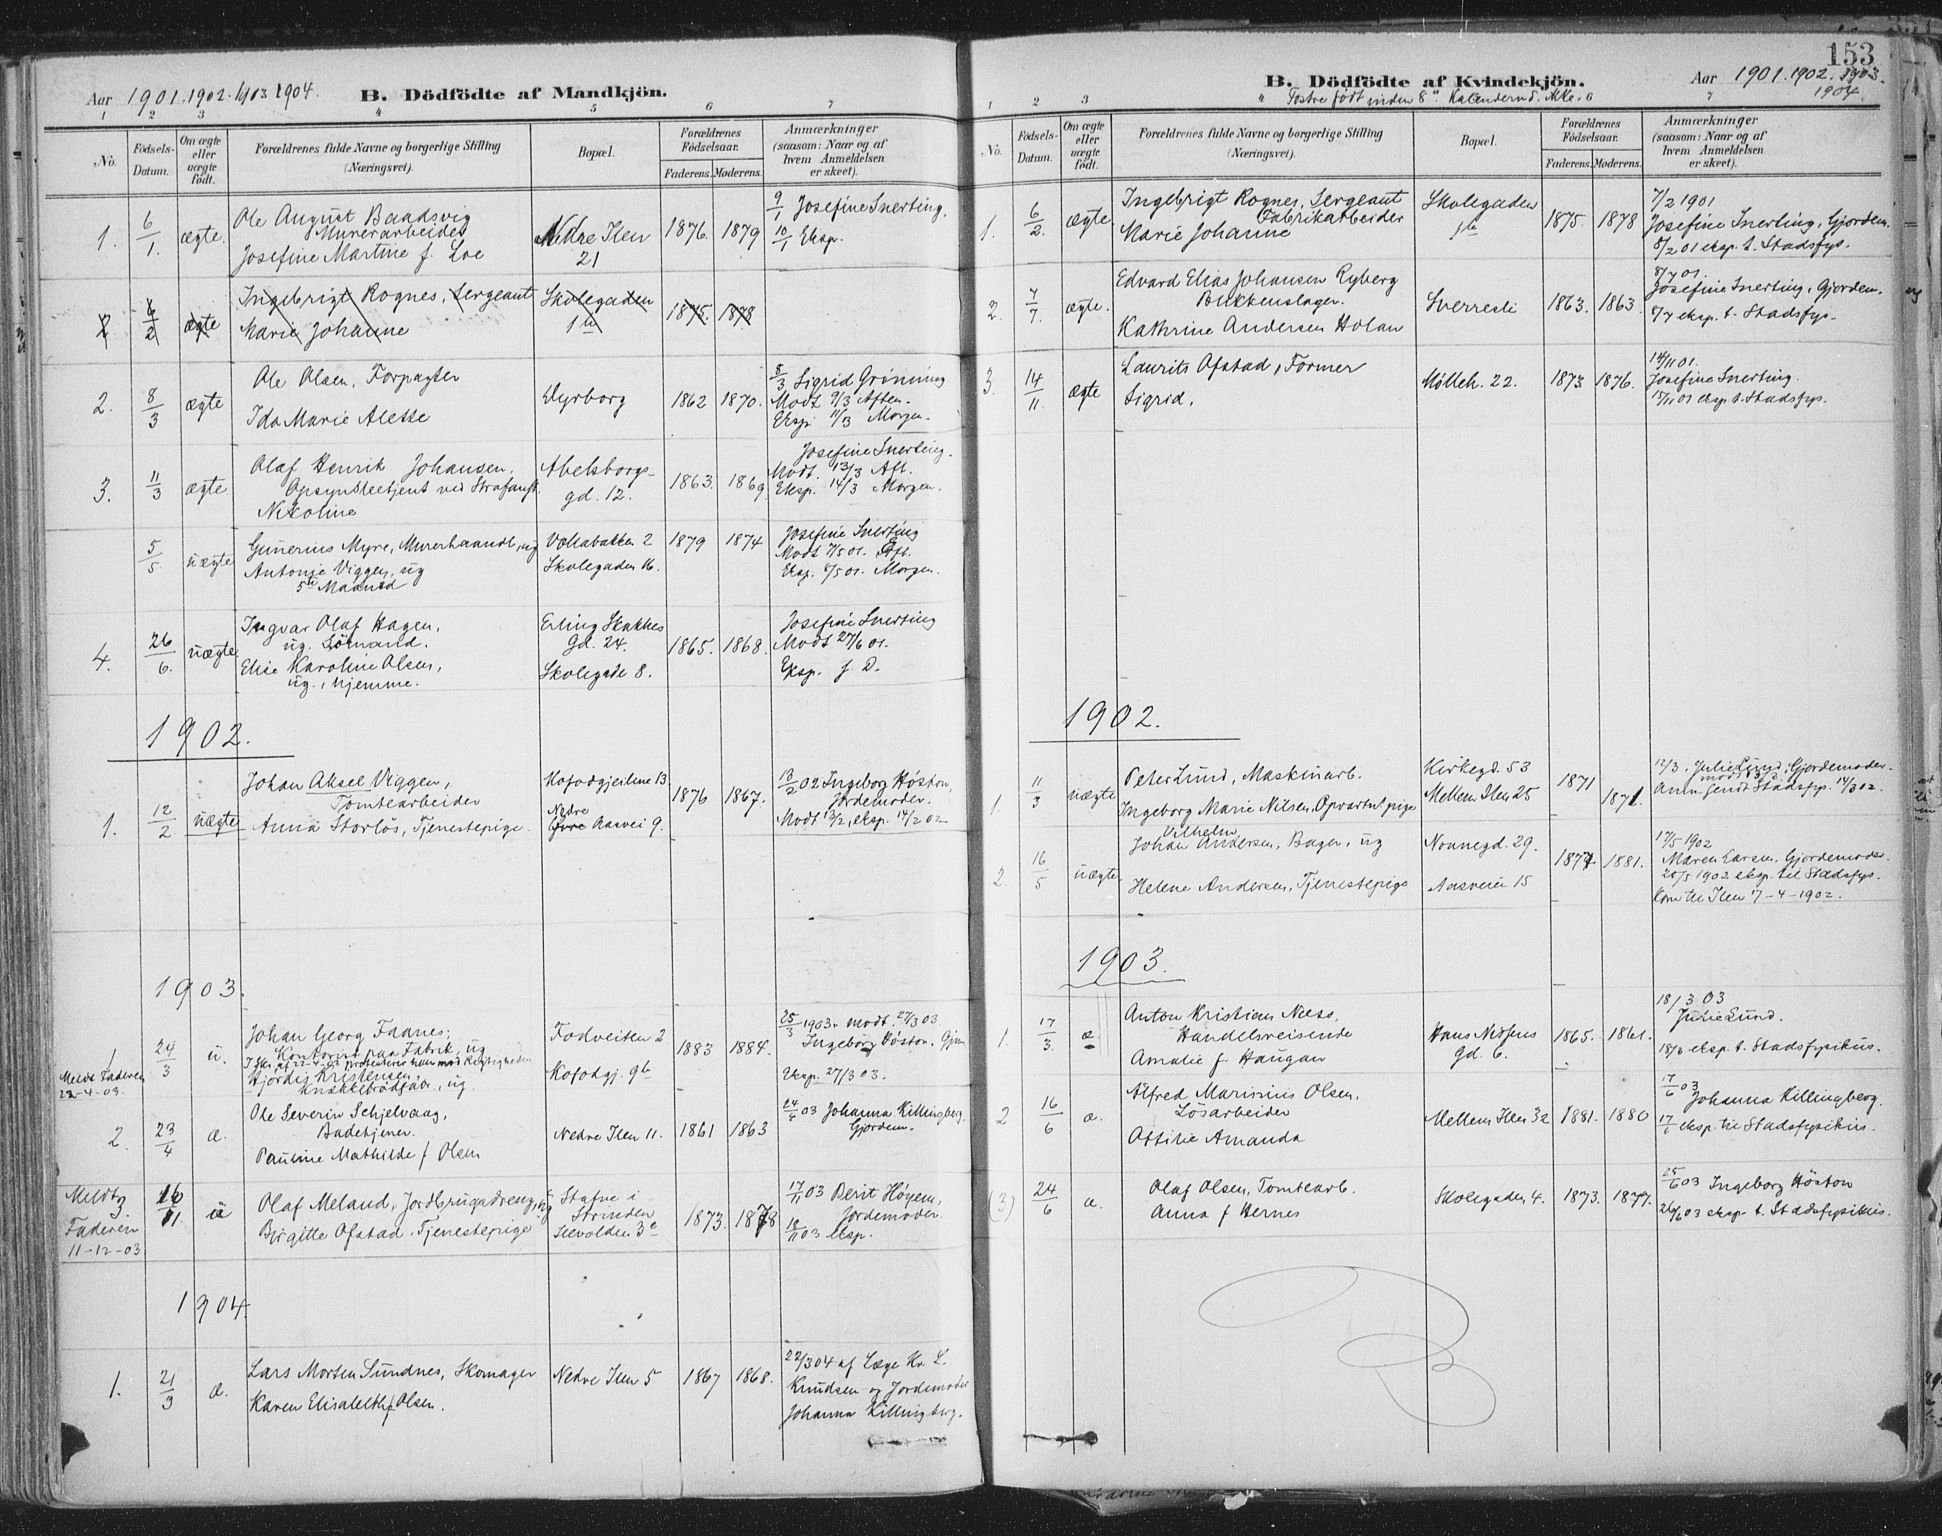 Aar 1901. 1902. 1903 1904.
B. Dödfödte af Mandkjön.
1 2 3 4 5 6 7
No.
Födsels-Datum.
Om ægte eller uægte født.
Forældrenes fulde Navne og borgerlige Stilling
(Næringsvei).
Bopæl.
Forældrenes Födselsaar.
Faderens. Moderens.
Anmærkninger
(saasom: Naar og af
hvem Anmeldelsen
er skeet).
1. 6/1. ægte. Ole August Baadsvig
Murerarbeider
Josefine Martine f. Loe
Nedre Ilen
21
1876. 1879
9/1 Josefine Snerting.
10/1 Eksp.
2 6/2 ægte Ingebrigt Rognes, Sergeant
Marie Johanne
Skolegaden
1b
1875. 1878
2. 8/3 ægte Ole Olsen, Forpagter
Ida Marie Alette
Dyrborg
1862 1870.
8/3 Sigrid Grönning
Modt 9/3 Aften.
Eksp. 11/3 Morgen.
3. 11/3 ægte Olaf Henrik Johansen,
Opsynsbetjent ved Strafanst.
Nikoline
Abelsborgs-
gd. 12.
1863. 1869
Josefine Snerting.
Modt. 13/3 Aft.
Eksp. 14/3 Morgen.
5/5 uægte Gunerius Myre, Murerhaandl., ug
Antonie Viggen, ug
5te Maaned
Voldabakken 2
Skolegaden 16.
1879 1874
Josefine Snerting
Modt 7/5 01. Aft.
Eksp. 8/5 01. Morgen.
4. 26/6. uægte Ingvar Olaf Hagen,
ug. Sömand.
Elise Karoline Olsen,
ug., hjemme.
Erling Skakkes
Gd. 24.
Skolegade 8.
1865. 1868.
Josefine Snerting
Modt 27/6 01.
Eksp. s. D.
1902.
1. 12/2 uægte Johan Aksel Viggen,
Tomtearbeider
Anna Storlös, Tjenestepige.
Kofodgjeilene 13
Nedre
Øvre Aasvei 9.
1876 1867.
13/2 02 Ingeborg Höston,
Jordemoder.
Modt 13/2, eksp. 14/2 02
1903.
1 24/3 u. Johan Georg Faanes,
Kontorist paa Fabrik, ug
Hjördis Kristensen,
Knækkebrödfabr., ug.
Meldt Faderen
22-4-03.
Fodveiten 2
Kofodgj. 9b
1883 1884.
25/3 1903. modt. 27/3 03
Ingeborg Höston. Gjm
Eksp. 27/3 03.
2. 23/4 æ. Ole Severin Schjelvaag,
Badetjener.
Pauline Mathilde f Olsen
Nedre Ilen 11.
1861 1863
24/4 03 Johanna Killingberg.
Gjordem.
3. 16/11 u Olaf Meland, Jordbrugsdreng, ug
Birgitte Ofstad. Tjenestepige
Meldt
Faderen
11-12-03.
Stafne i
Strinden
Ilevolden 3c
1873. 1878
17/11 03 Berit Höyem,
Jordemoder
18/11 03 eksp.
1904.
1. 21/3 æ. Lars Morten Sundnes, Skomager
Karen Elisabeth f Olsen.
Nedre Ilen 5
1867 1868.
22/3 04 af Læge Kr. L.
Knudsen og Jordemoder
Johanna Killingberg.
153
B. Dödfödte af Kvindekjön.
Aar 1901. 1902. 1903.
1904.
Fostre født inden 8de Kalenderm. ikke.
1 2 3 4 6 7
No.
Födsels-Datum.
Om ægte eller uægte födt.
Forældrenes fulde Navne og borgerlige Stilling
(Næringsvei).
Bopæl.
Forældrenes Födselsaar.
Faderens. Moderens.
Anmærkninger
(saasom: Naar og af
hvem Anmeldelsen
er skeet).
1. 6/2. ægte Ingebrigt Rognes, Sergeant
Fabrikarbeider
Marie Johanne
Skolegaden
1b
1875. 1878
7/2 1901
Josefine Snerting, Gjordem.
8/2 01 eksp. t. Stadsfys.
2. 7/7. ægte. Edvard Elias Johansen Ryberg
Blikkenslager.
Kathrine Andersen Holan
Sverresli
1863. 1863.
8/7 01.
Josefine Snerting, Gjordem.
8/7 eksp. t. Stadsfys.
3. 14/11. ægte Laurits Ofstad, Former
Sigrid.
Mölleb. 22.
1873 1876.
14/11 01.
Josefine Snerting.
15/11 01 eksp. t. Stadsfys.
1902.
1 11/3 uægte Peter Lund, Maskinarb.
Ingeborg Marie Nilsen, Opvartn.pige
Kirkegd. 53
Mellem Ilen 25
1871 1871.
12/3. Julie Lund, Gjordemoder.
14/3 02.
2. 16/5 uægte Johan Vilhelm Andersen, Bager, ug
Helene Andersen, Tjenestepige
Nonnegd. 29.
Aasveien 15
1877. 1881.
17/5 1902
Maren Larsen, Gjordemoder.
20/5 1902 eksp. til Stadsfys.
Kom til Ilen 17-4-1902.
1903.
1. 17/3 æ. Anton Kristian Næss,
Handelsreisende
Amalie f Haugan
Hans Nissens
Gd. 6.
1865. 1861.
18/3 03
Julie Lund.
18/3 eksp. t. Stadsfysikus.
2 16/6 æ. Alfred Marinius Olsen,
Lösarbeider
Ottilie Amanda
Mellem Ilen 32
1881. 1880
17/6 03
Johanna Killingberg.
17/6 eksp. til Stadsfysikus.
(3) 24/6 æ. Olaf Olsen, Tomtearb.
Anna f Hernes
Skolegaden 4.
1873. 1877.
25/6 03 Ingeborg Höston
26/6 03 eksp. t. Stadsfysikus.